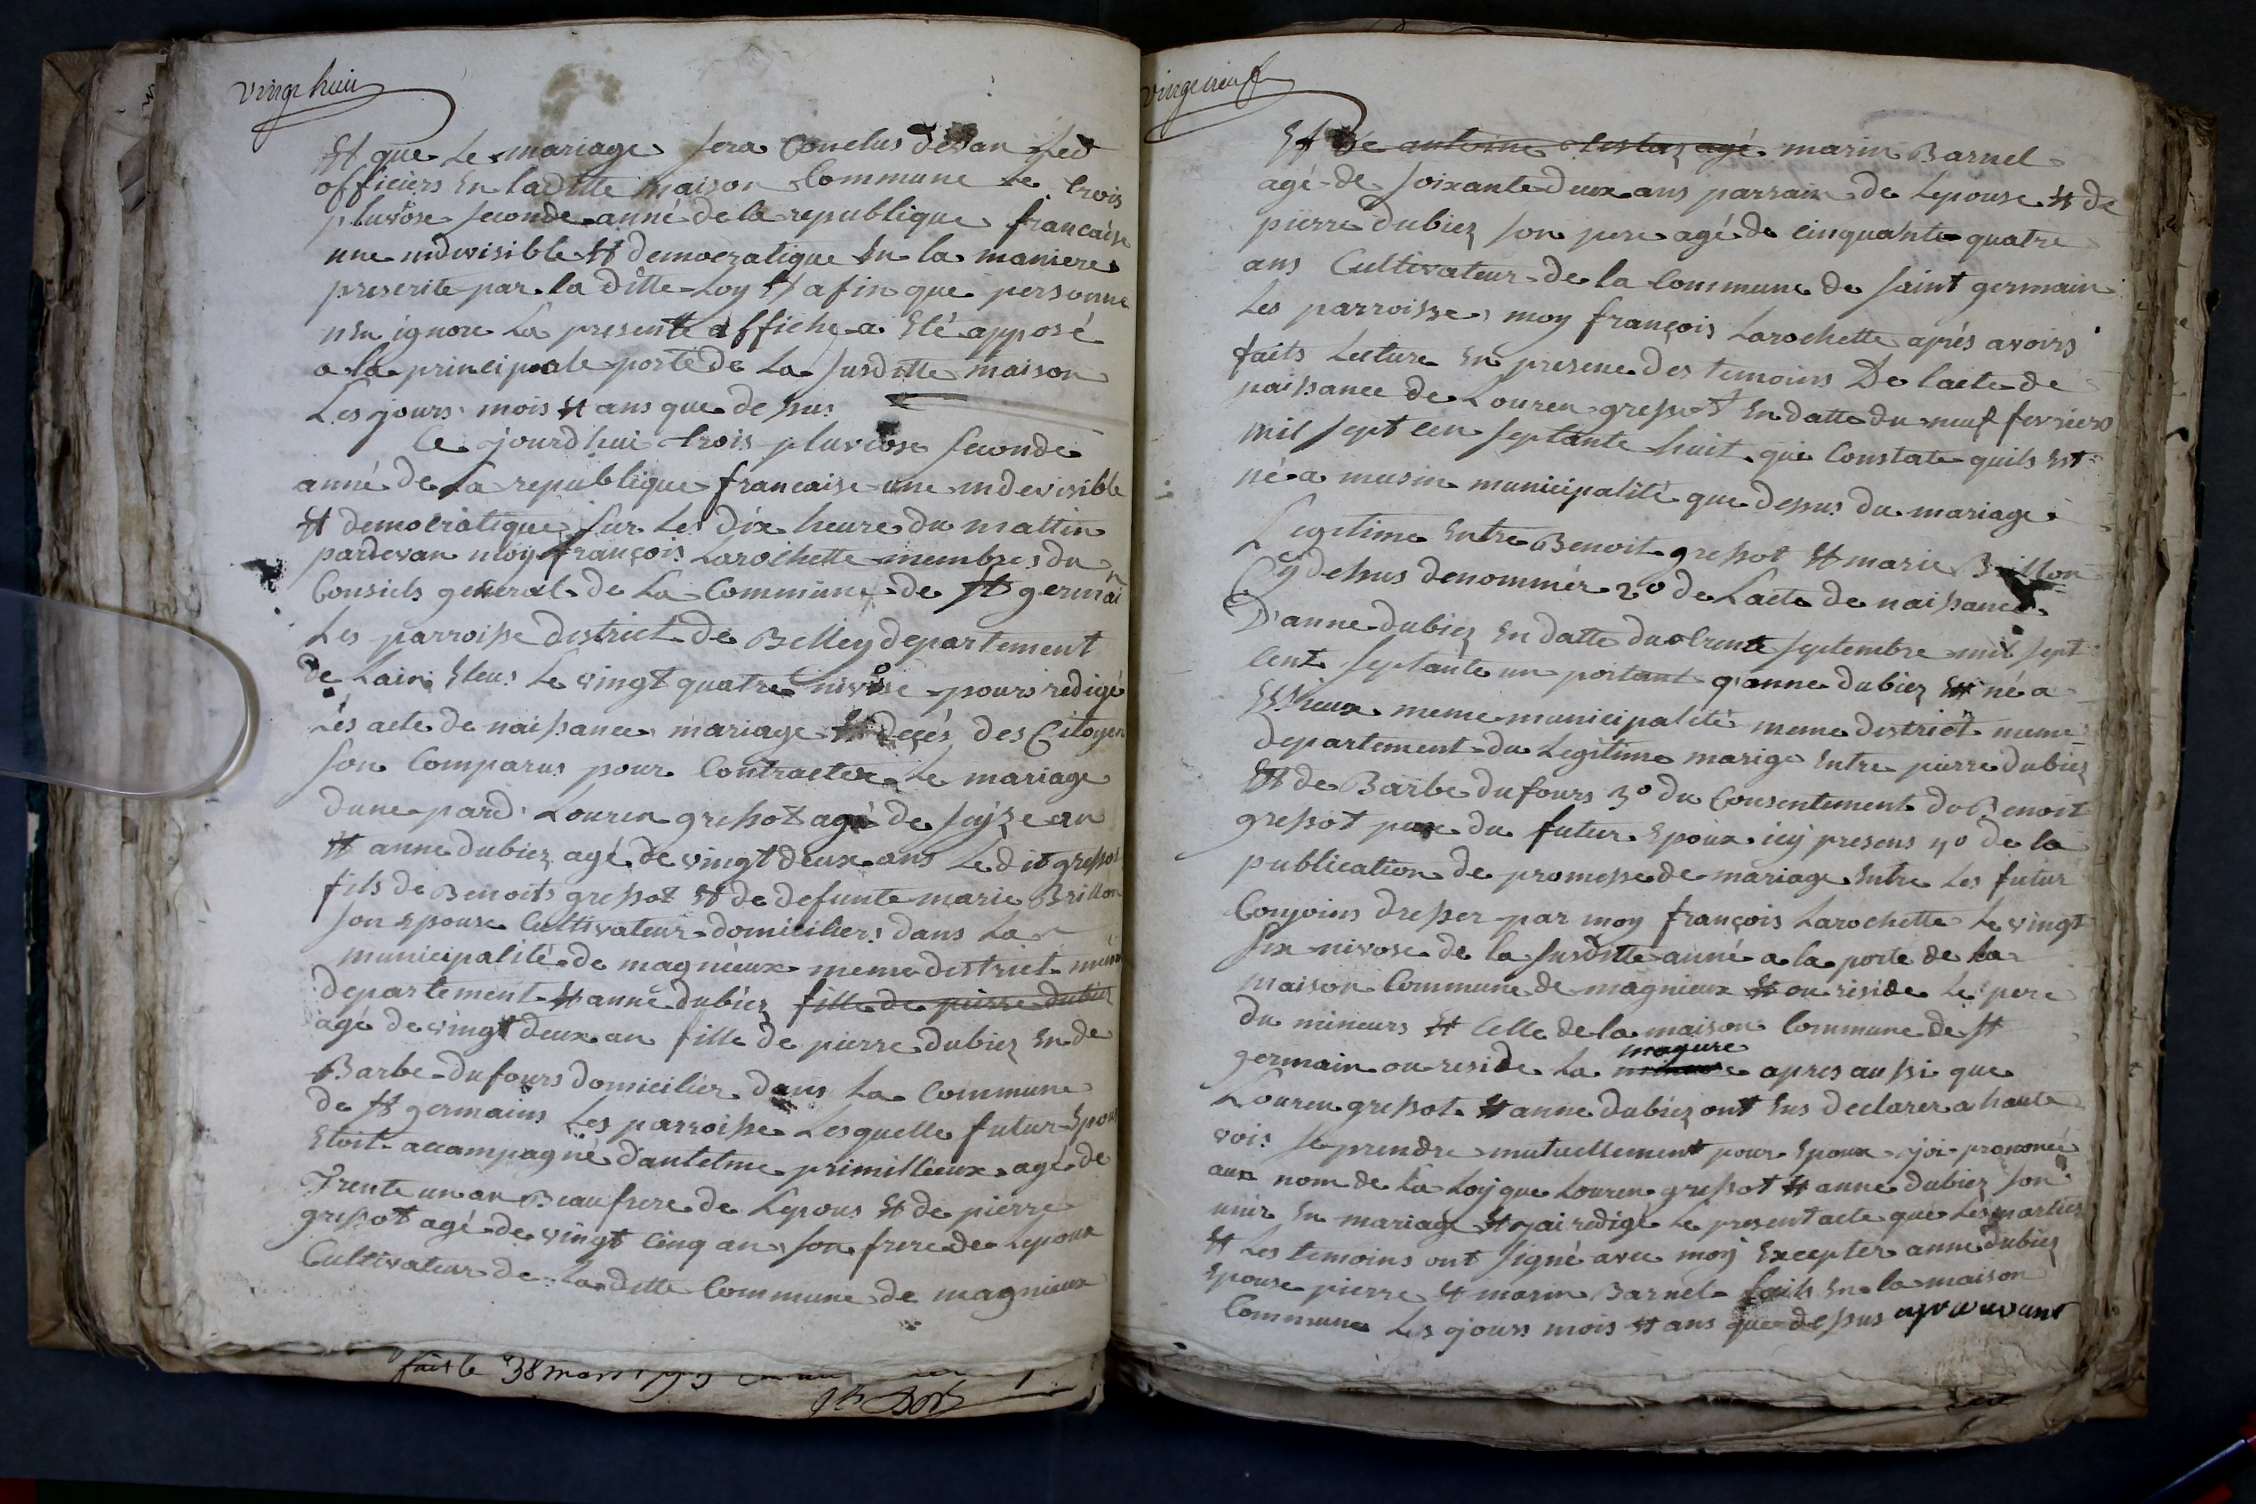 vingt huit
Et que le mariage sera conclus devan les
officiers en laditte maison commune le trois
pluvose seconde anné de la republique francaise
une indivisible et democratique en la maniere
prescrite par la ditte loy et afin que personne
n'en ignore la presente affiche a eté apposé
a la principale porte de la susditte maison
les jours mois et ans que dessus
Ce jourdhui trois pluviose seconde
anné de la republique francaise une indevisible
et democratique sur les dix heure du mattin
pardevan moy françois Larochette membres du
Consiels general de la commune de st germain
les parroisse district de Belley departement
de Lain Eleu le vingt quatre nivose pour redigé
Les acte de naissance mariage et decés des Citoyen
son comparus pour contracter le mariage
dune pard Louren gressot agé de seyze an
et anne dubiez agé de vingt deux ans Le dit gressot
fils de Benoits gressot et de defunte marie Brillon
son epouse cultivateur domicilier dans la
municipalité de magnieux meme district meme
departement et anne dubiez fille de pierre dubiez
agé de vingt deux an fille de pierre dubiez en de
Barbe dufours domicilier dans la commune
de st germains les parroisse lesquelle futur Epoux
Etoit accompagné d'antelme primillieux agé de
Trente un an Beaufrere de Lepous et de pierre
gressot agé de vingt cinq an son frere de Lepoux
Cultivateur de laditte commune de magnieux
fait le 28 mars
vingt neuf
Et de antoine agé marin Barnel
agé de soixante deux ans parrain de Lepouse et de
pierre dubiez son pere agé de cinquante quatre
ans Cultivateur de la commune de saint germain
les parroisse, moy françois Larochette aprés avoirs
faits Lecture en presence des temoins De lacte de
naissance de Louren gressot en datte du neuf fevriers
mil sept cen septante huit que constate quils est
né a musin municipalité que dessus du mariage
Legitime entre Benoit gressot et marie Brillon
Cy dessus denommér 2o de Lacte de naissance
D'anne dubiez en datte du trente septembre mil sept
cent septante un portant q'anne dubiez est né a
meme municipalité meme district meme
departement du Legitime marige entre pierre dubiez
Et de Barbe dufours 3o du consentement de Benoit
gressot pere du futur Epoux icy presens 4o de la
publication de promesse de mariage entre les futur
Conjoins dresser par moy françois Larochette le vingt
six nivose de la susditte anné a la porte de la
maison commune de magnieux et ou reside le pere
du mineurs et celle de la maison commune de st
germain ou reside la majure apres aussi que
Louren gressot et anne dubiez ont eus declarer a haute
voix se prendre mutuellement pour epoux j'ai prononcé
aux nom de la Loy que Louren gressot et anne dubiez son
unir en mariage et j'ai redigé le present acte que les parties
et les temoins ont signé avec moy Excepter anne dubiez
Epouse pierre et marin Barnel faits en la maison
Commune les jours mois et ans que dessus